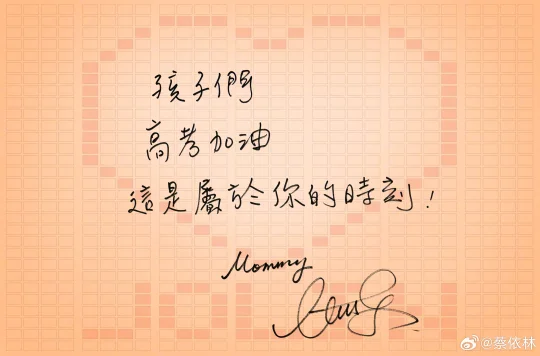 孩子們
高考加油
這是屬於你的時刻！
Mommy
@蔡依林